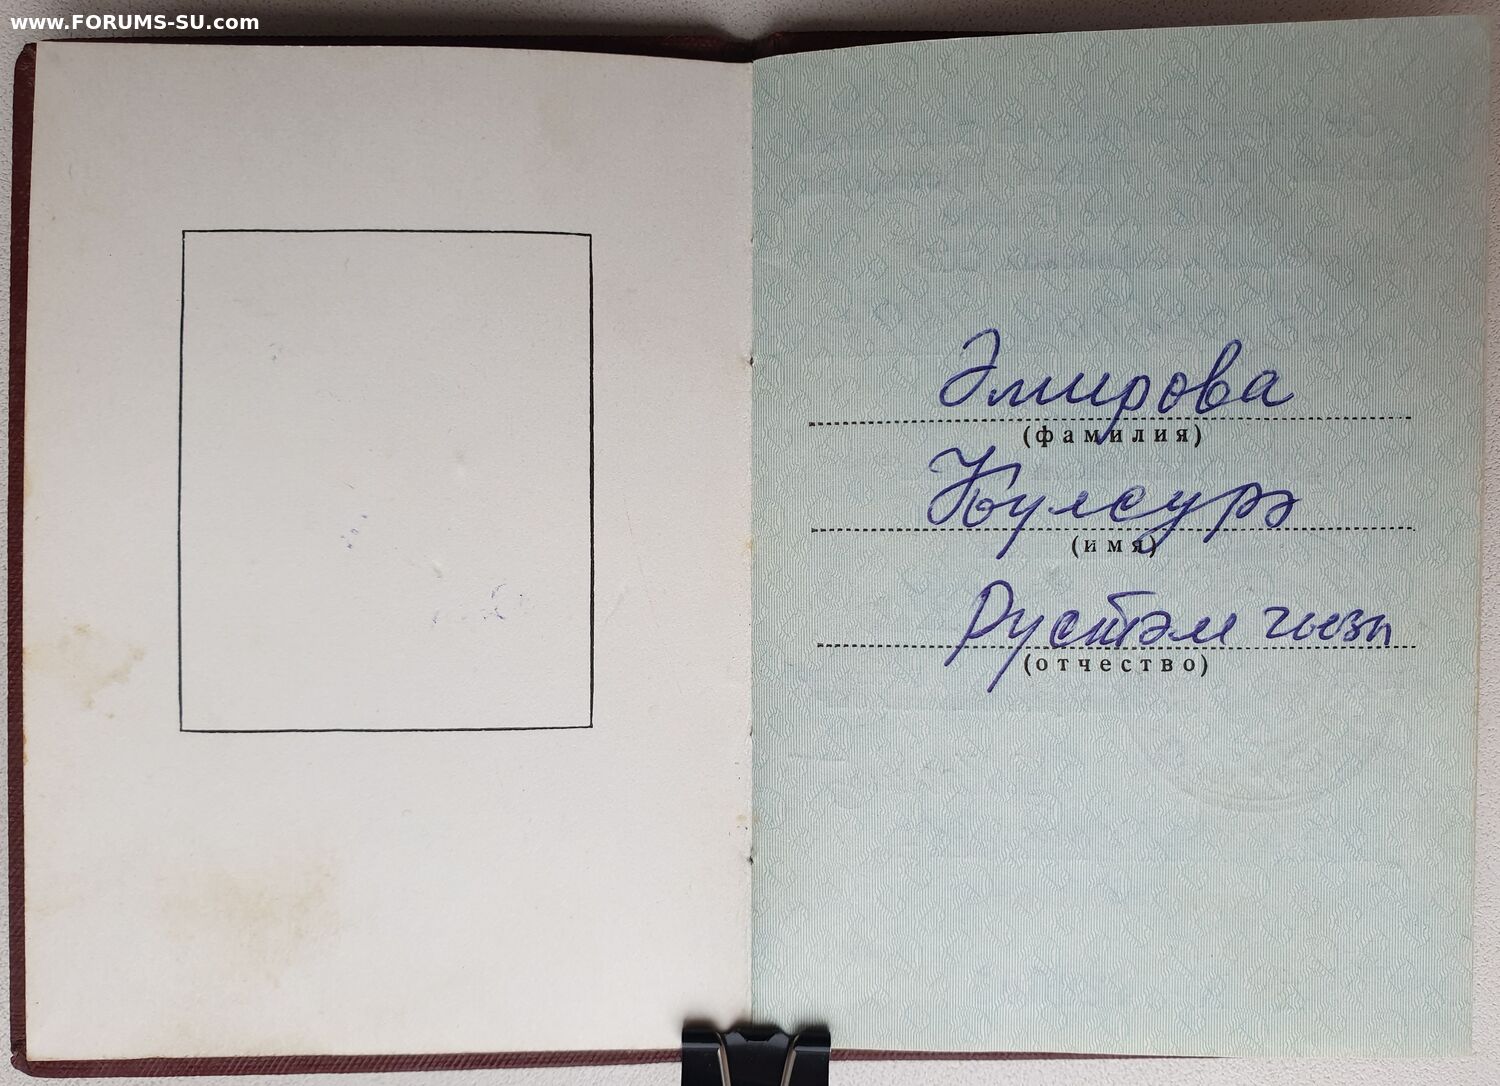 www.FORUMS-SU.com
Әмирова
(фамилия)
Ҝүлсурə
(имя)
Рустәм гызы
(отчество)